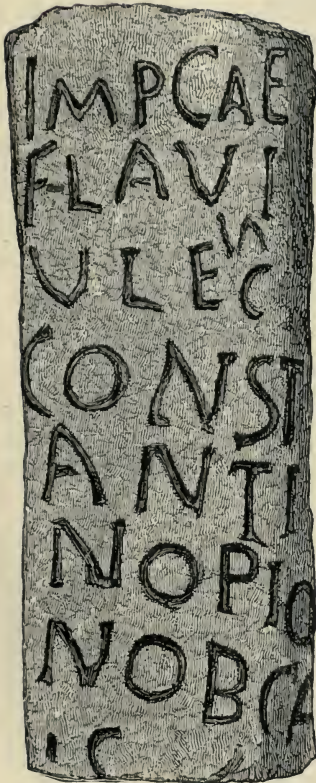 IMPCAE
FLAVI
ULEC
CONST
ANTI
NOPIO
NOBCA